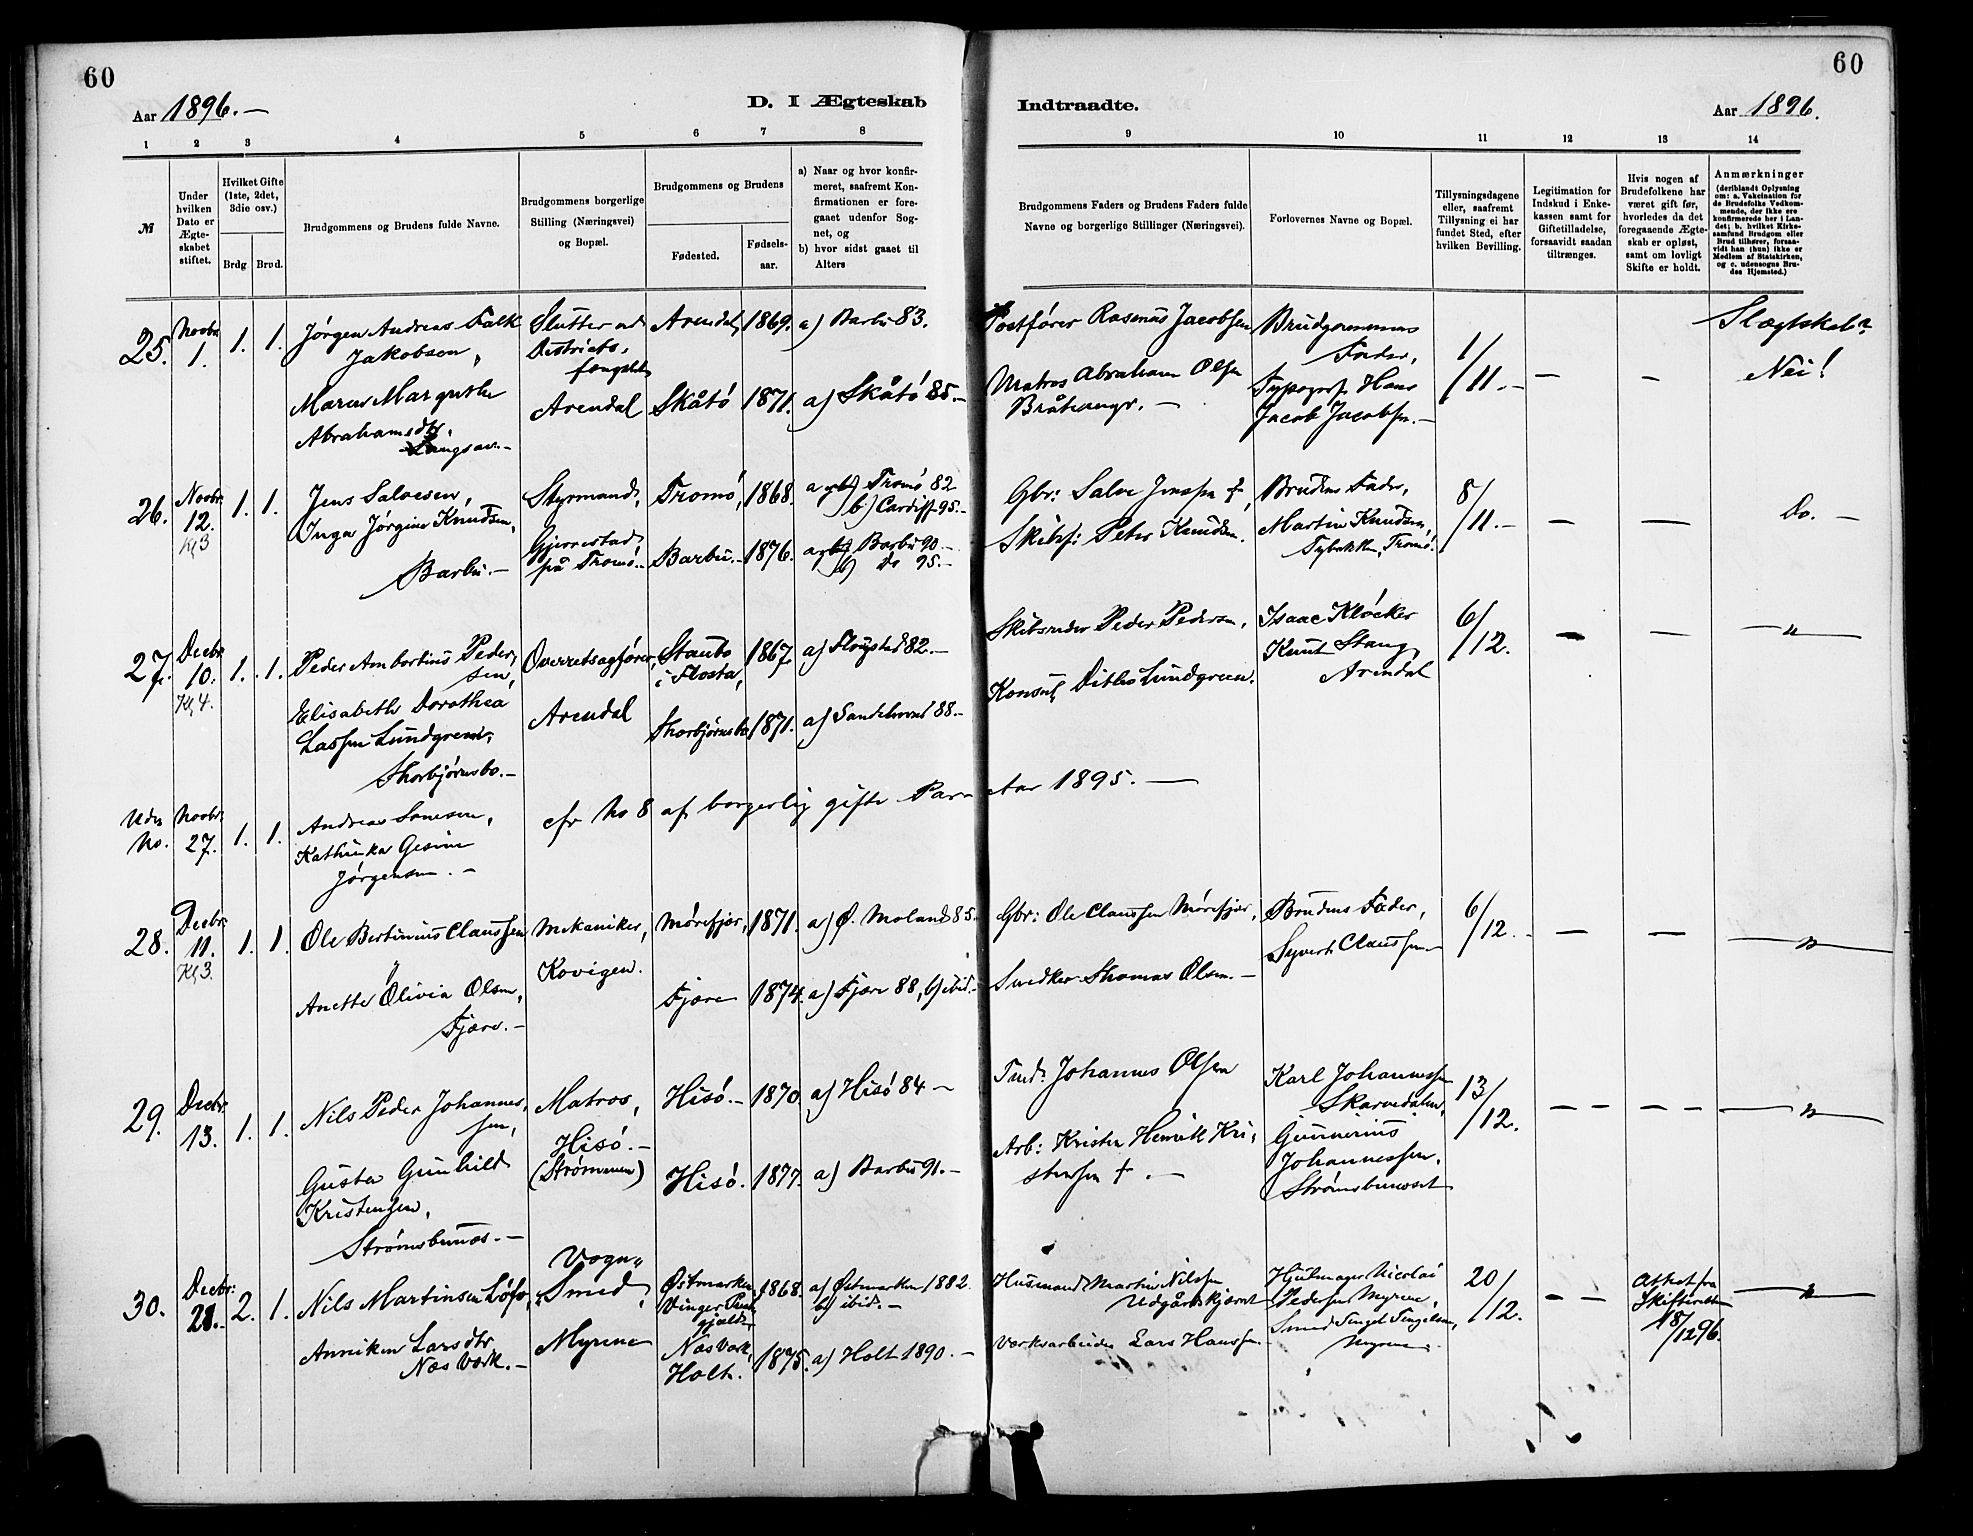 60
60
Aar 1896. —
D. I Ægteskab
Indtraadte.
Aar 1896.
1 2 3 4 5 6 7 8 9 10 11 12 13 14
№
Under hvilken Dato er Ægteskabet stiftet.
Hvilket Gifte (1ste, 2det, 3die osv.)
Brdg.
Brud.
Brudgommens og Brudens fulde Navne.
Brudgommens borgerlige Stilling (Næringsvei) og Bopæl.
Brudgommens og Brudens
Fødested.
Fødsels-aar.
a) Naar og hvor konfirmeret, saafremt Konfirmationen er foregaaet udenfor Sognet, og
b) hvor sidst gaaet til Alters
Brudgommens Faders og Brudens Faders fulde Navne og borgerlige Stillinger (Næringsvei).
Forlovernes Navne og Bopæl.
Tillysningsdagene eller, saafremt Tillysning ei har fundet Sted, efter hvilken Bevilling.
Legitimation for Indskud i Enkekassen samt for Giftetilladelse, forsaavidt saadan tiltrænges.
Hvis nogen af Brudefolkene har været gift før, hvorledes da det foregaaende Ægteskab er opløst, samt om lovligt Skifte er holdt.
Anmærkninger
(deriblandt Oplysning om: a. Vakcination for de Brudefolks Vedkommende, der ikke ere konfirmerede her i Landet; b. hvilket Kirkesamfund Brudgom eller Brud tilhører, forsaavidt han (hun) ikke er Medlem af Statskirken, og c. udensogns Brudes Hjemsted.)
25. Novbr. 1. 1. 1.
Jørgen Andreas Falk
Jakobsen,
Maren Margrethe
Abrahamsdtr.
Langsæ. —
Slutter ved
Districts-
fængslet
Arendal
Arendal, 1869. a) Barbu 83.
Skåtö 1871. a) Skåtö 85. —
Postfører Rasmus Jacobsen
Matros Abraham Olsen
Bråtungr. —
Brudgommens
Fader,
Typograf Hans
Jacob Jacobsen. —
1/11. —
— —
Slægtskab?
Nei!
26. Novbr. 12. Kl 3 1. 1.
Jens Salvesen,
Inga Jørgine Knudsen,
Barbu. —
Styrmand,
Gjerrestad
på Tromö. —
Tromö, 1868. a) Tromö 82
b) Cardiff 95. —
Barbu. — 1876. a) Barbu 90. —
b) Do 95. —
Gbr: Salve Jenssen †,
Skibsf: Peter Knudsen.
Brudens Fader,
Martin Knudsen,
Tybakken, Tromö.
8/11. —
— —
Do. —
27. Decbr. 10. Kl 4. 1. 1.
Peder Ambortius Peder-
sen,
Elisabeth Dorothea
Lassen Lundgreen,
Thorbjørnsbo. —
Overretssagfører,
Arendal
Staubo
i Flosta, 1867. a) Flosta 82. —
Thorbjørnsbo 1871. a) 88. —
Skibsreder Peder Pedersen,
Konsul Ditlev Lundgreen.
Isaac Kløcker
Knut Stang
Arendal
6/12.
— —
—"—
Uden No. Novbr. 27. 1. 1.
Andreas Sonesen,
Kathinka Gesine
Jørgensen. —
cfr No 8 af borgerlig gifte Par — Aar 1895. —
28. Decbr. 11. Kl 3. 1. 1
Ole Bertinius Claussen
Anette Olivia Olsen,
Fjære. —
Mekaniker,
Kovigen.
Mörefjær, 1871. a) Ø. Moland 85.
Fjære 1874. a) Fjære 88, b) ibid. —
Gbr: Ole Claussen Mörefjær,
Snedker Thomas Olsen. —
Brudens Fader,
Syvert Claussen
6/12. —
— —
—"—
29. Decbr. 13. 1. 1.
Nils Peder Johannes-
sen,
Gusta Gunhild
Kristensen,
Strømsbunæs. —
Matros,
Hisö. —
(Strømmen)
Hisö. — 1870. a) Hisö 84 —
Hisö. 1877. a) Barbu 91. —
Johannes Olsen
Arb: Krister Henrik Kri-
stensen †. —
Karl Johannessen
Skarvedalen,
Gunnerius
Johannessen.
Strømsbuneset
13/12.
— — — —
—"—
30. Decbr: 21. — 2. 1.
Nils Martinsen Löfo,
Anniken Larsdtr
Næs Værk. —
Vogn-
Smed,
Myrene
Østmarken
Vinger Præste-
gjæld, 1868. a) Østmarken 1882.
b) ibid. —
Næs Værk,
Holt. 1875. a) Holt 1890. —
Husmand Martin Nilssen
Udgårdskjærnet
Værksarbeider Lars Hanssen
Hjulmager Nicolai
Pedersen Myrene,
Smed Tengel Tengelsen,
Myrene.
20/12.
— —
Attest fra
Skifteretten
18/12 96.
—"—